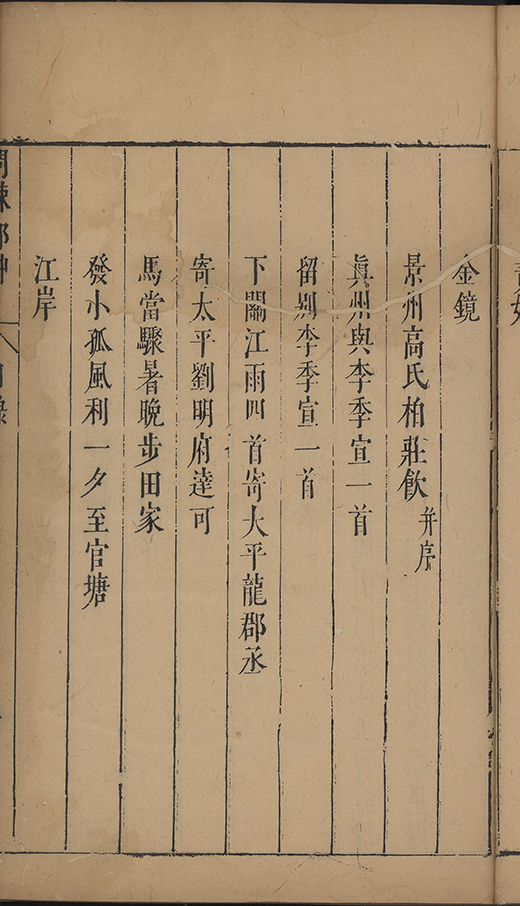 金鏡
景州高氏柏莊飲并序
眞州與李季宣一首
留别李季宣一首
下關江雨四首寄太平龍郡丞
寄太平劉明府達可
馬當驟暑晚步田家
發小孤風利一夕至官塘
江岸